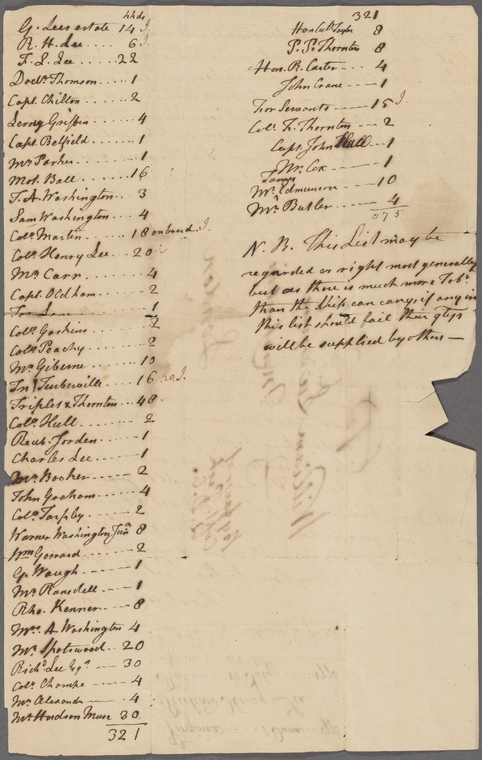 hhds
G. Lees estate .. 14 J
R. H. Lee ..... 6 J.
F. L. Lee ..... 22
Doctr. Thomson .... 1
Capt. Chilton .... 2
Leroy Griffin .... 4
Capt. Belfield .... 1
Mr. Parker ...... 1
Mot. Ball ...... 16
T. A. Washington .. 3
Sam Washington .... 4
Colo. Martin ..... 18 on board J.
Colo. Henry Lee .. 20
Mr. Carr ..... 4
Capt. Oldham ... 2
1
Colo. Gaskins ....
Colo. Peachy .... 2
Mr. Giberne .... 10
Jn. Turberville ... 16 J.
Triplet & Thornton .. 48
Colo. Hull ...... 2
Reub. Jorden .... 1
Charles Lee .... 1
Mr. Booker ---- 2
John Graham .... 4
Colo. Tarpley --- 2
Warner Washington Junr 8
Wm Gerrard ---- 2
Gp. Waugh ---- 1
Mr. Ransdell --- 1
Rho. Kenner --- 8
Mrs. A Washington 4
Mr. Spotswood .. 20
Richd. Lee Esqr. -- 30
Colo. Champe --- 4
Mr. Alexander --- 4
Mr. Hudson Muse 30
321
321
Honble Colo. Tayloe 8
P. P. Thornton 8
Hon. R. Carter --- 4
John Crane --- 1
For Servants --- 15 J.
Colo. F. Thornton -- 2
Capt. John Hull -- 1
Mr. Cox ---- 1
Mr. Edmunson --- 10
Mr. Butler --- 4
375
N. B. This List may be
regarded as right most generally
but as there is much more Tobo.
than the ship can carry, if any in
this list should fail their
will be supplied by others —